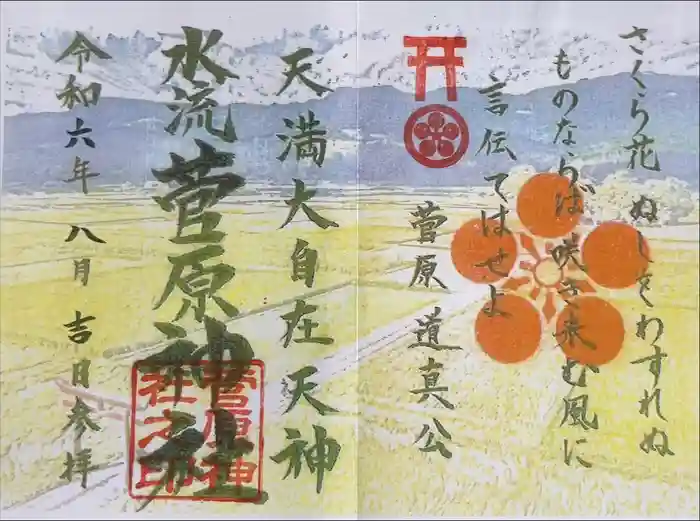 さくら花 ぬしをわすれぬ
ものならば 咲き来む風に
言伝てはせよ
菅原 道真公
天満大自在天神
水流菅原神社
菅原神
社之印
令和六年 八月 吉日参拝